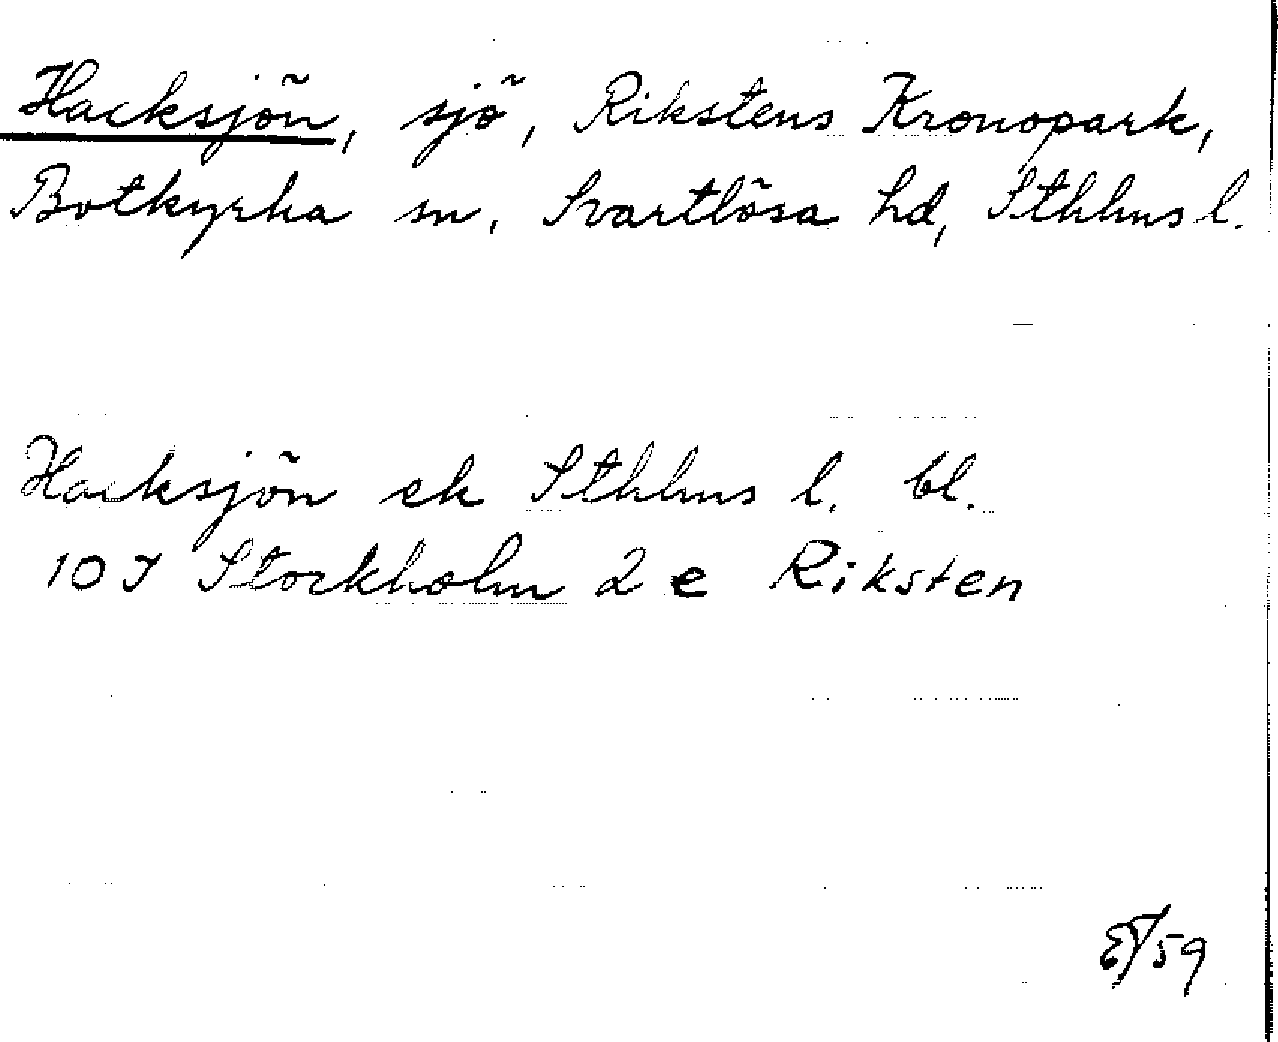 Hacksjön, sjö, Rikstens Kronopark,
Botkyrka sn, Svartlösa hd, Sthlms l.
Hacksjön ek Sthlms l. bl.
10 I Stockholm 2 e Riksten
/59